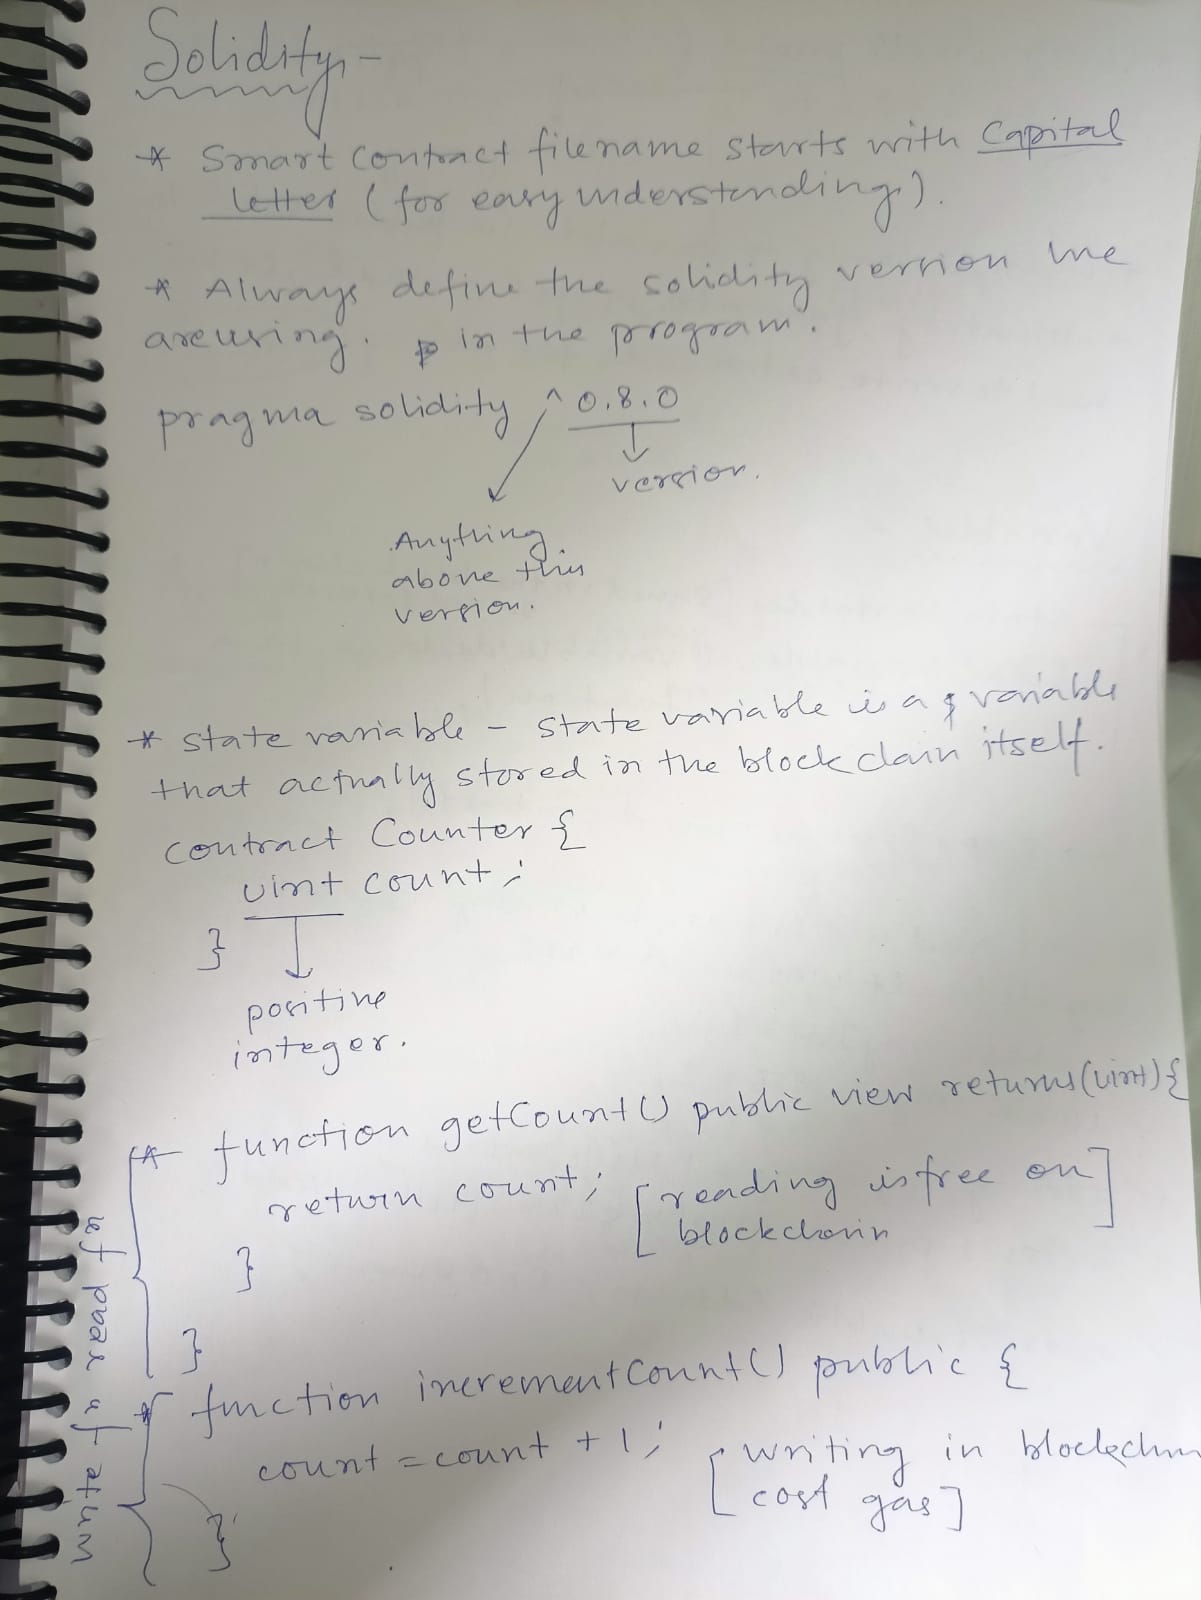 Solidity -
* Smart Contract filename starts with Capital
letter (for easy understanding).
* Always define the solidity version we
are using. in the program.
pragma solidity ^ 0.8.0
version.
Anything
above this
version.
* state variable - state variable is a variable
that actually stored in the blockchain itself.
contract Counter {
uint count;
}
positive
integer.
* function getCount() public view returns(uint){
return count; [reading is free on]
blockchain
}
}
* function incrementCount() public {
count = count + 1; [writing in blockchain
cost gas]
}
write fn read fn